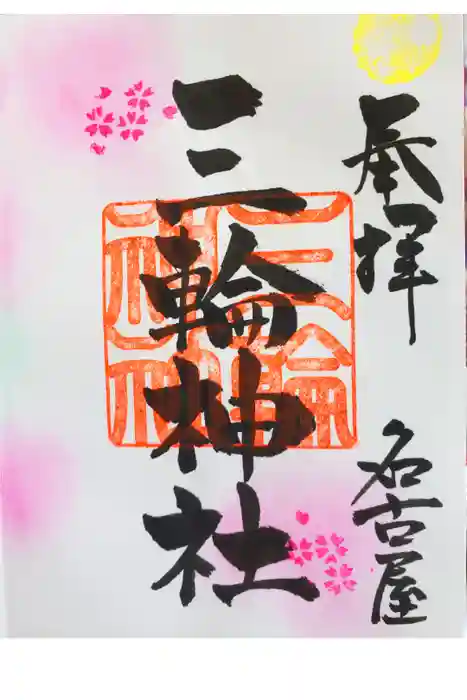 奉拝
名古屋
三輪神社
三輪
神社